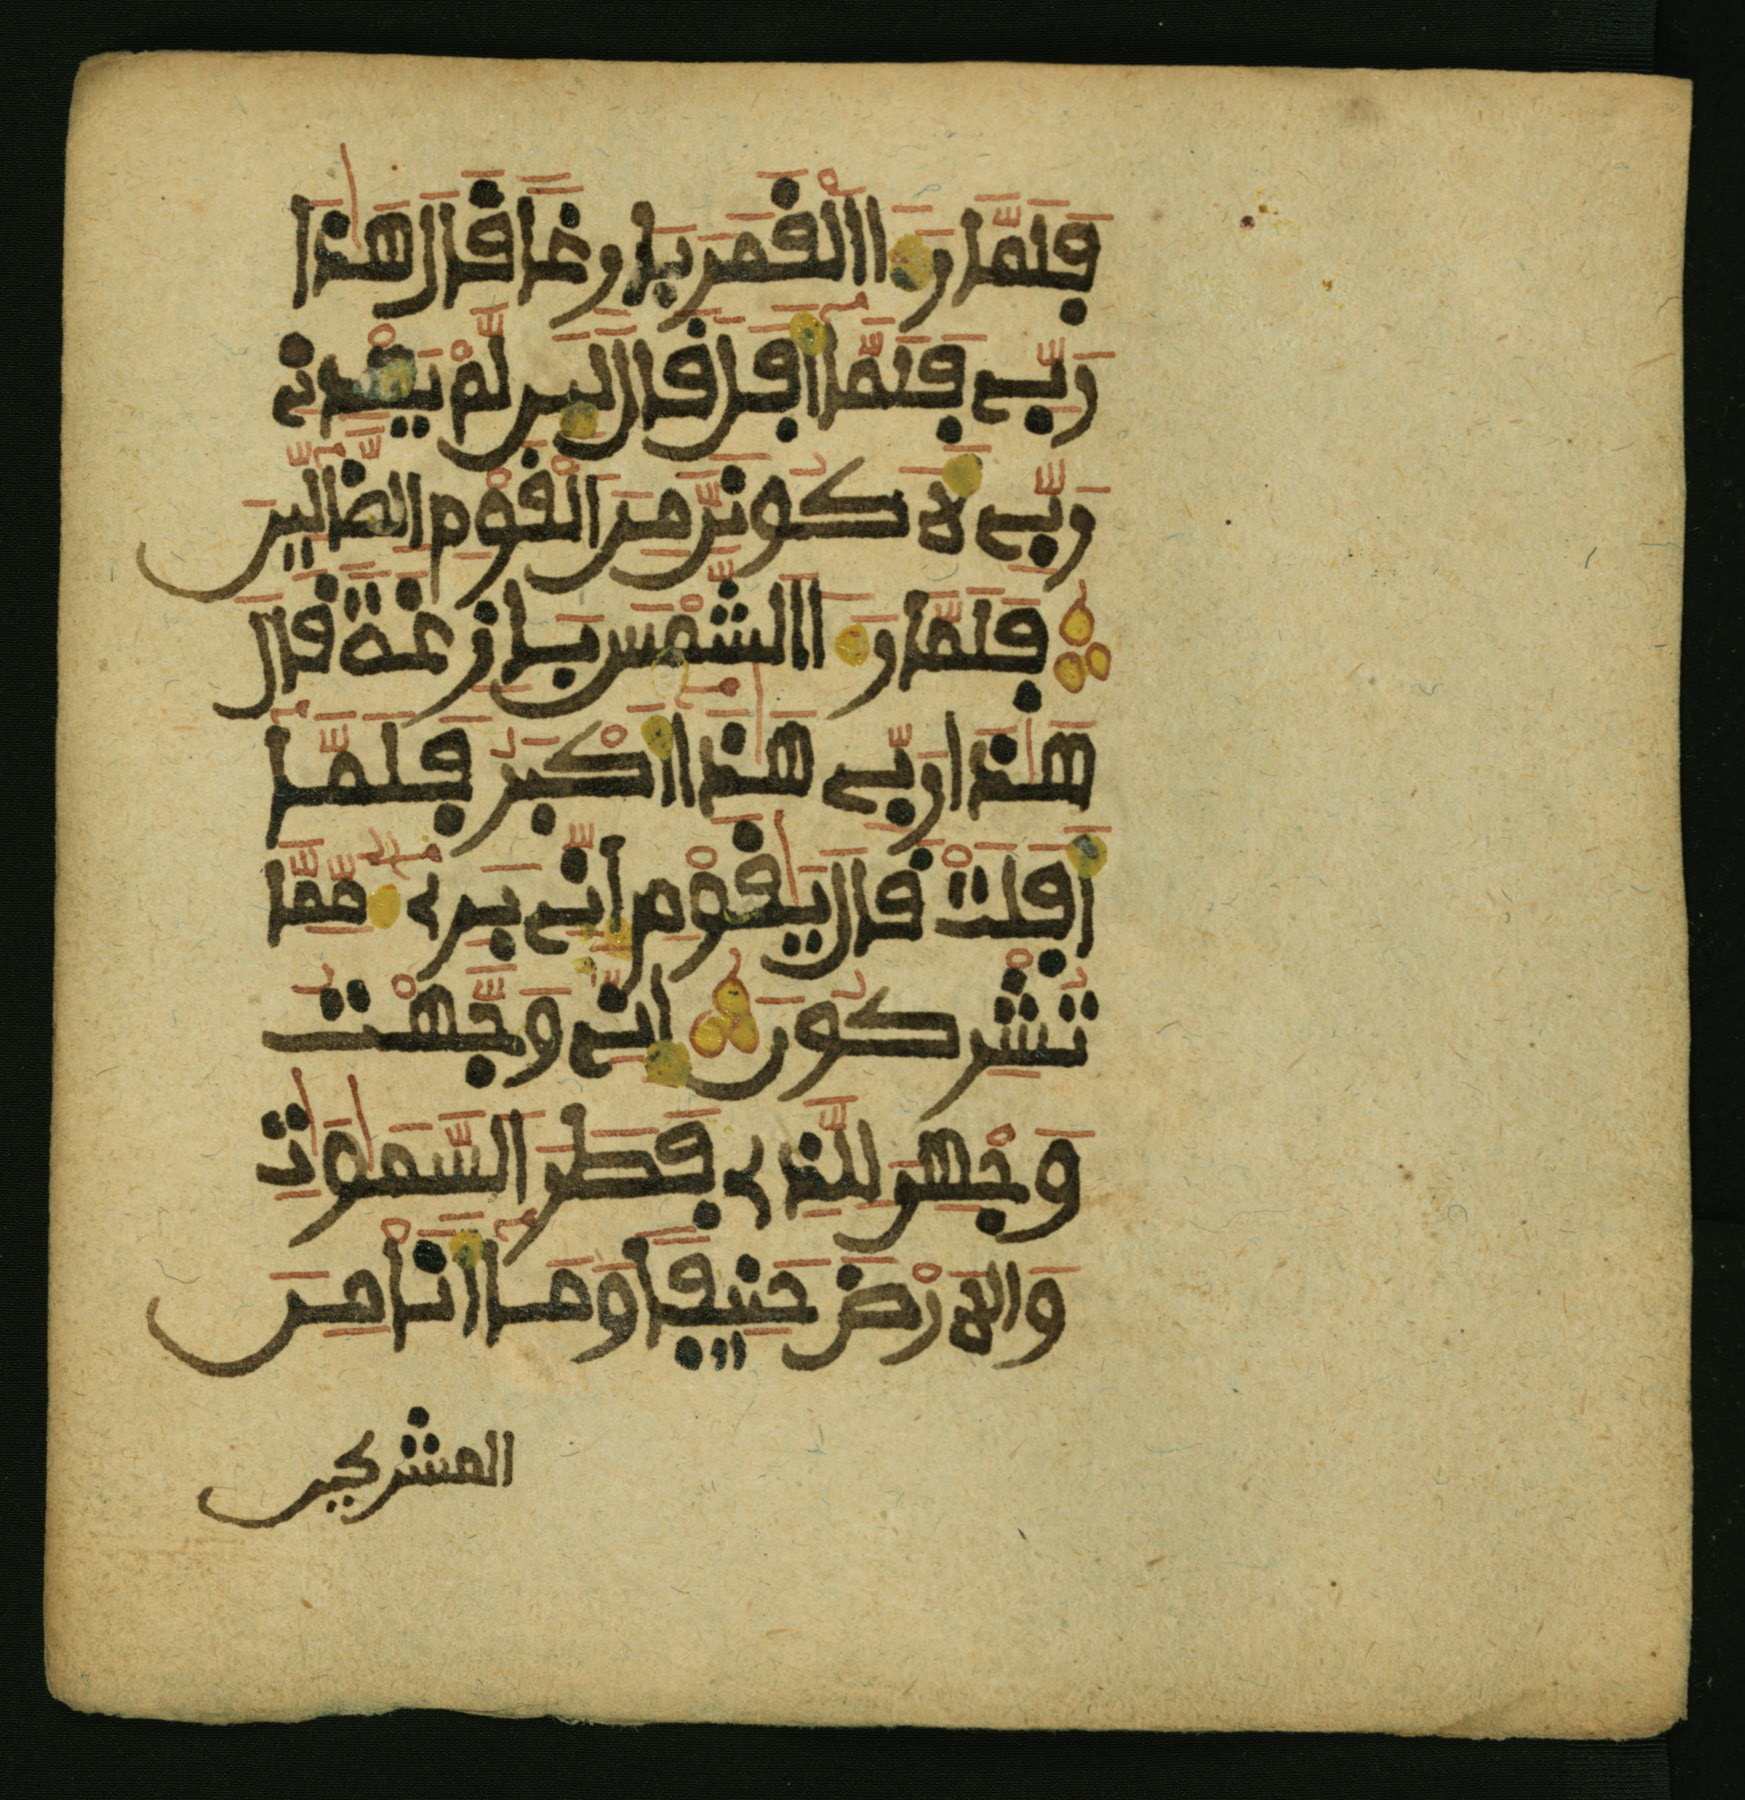 فَلَمَّا رَءَا اَ۬لْقَمَرَ بَازِغاً قَالَ هَٰذَا
رَبِّے فَلَمَّآ أَفَلَ قَالَ لَئِن لَّمْ يَهْدِنِے
رَبِّے لَأَكُونَنَّ مِنَ اَ۬لْقَوْمِ اِ۬لضَّآلِّينَ
فَلَمَّا رَءَا اَ۬لشَّمْسَ بَازِغَةً قَالَ
هَٰذَا رَبِّے هَٰذَآ أَكْبَرُ فَلَمَّآ
أَفَلَتْ قَالَ يَٰقَوْمِ إِنِّے بَرِےٓءٌ مِّمَّا
تُشْرِكُونَ إِنِّے وَجَّهْتُ
وَجْهِيَ لِلَّذِے فَطَرَ اَ۬لسَّمَٰوَٰتِ
وَالْأَرْضَ حَنِيفاً وَمَآ أَنَا مِنَ
المشركين